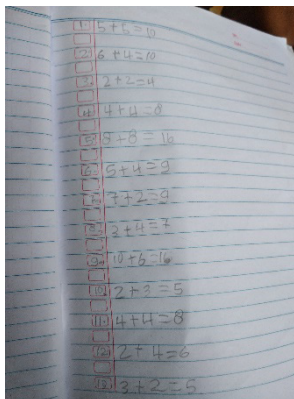 1 5+5=10
2 6+4=10
3 2+2=4
4 4+4=8
5 8+8=16
6 5+4=9
7 7+2=9
8 3+4=7
9 10+6=16
10 2+3=5
11 4+4=8
12 2+4=6
13 3+2=5